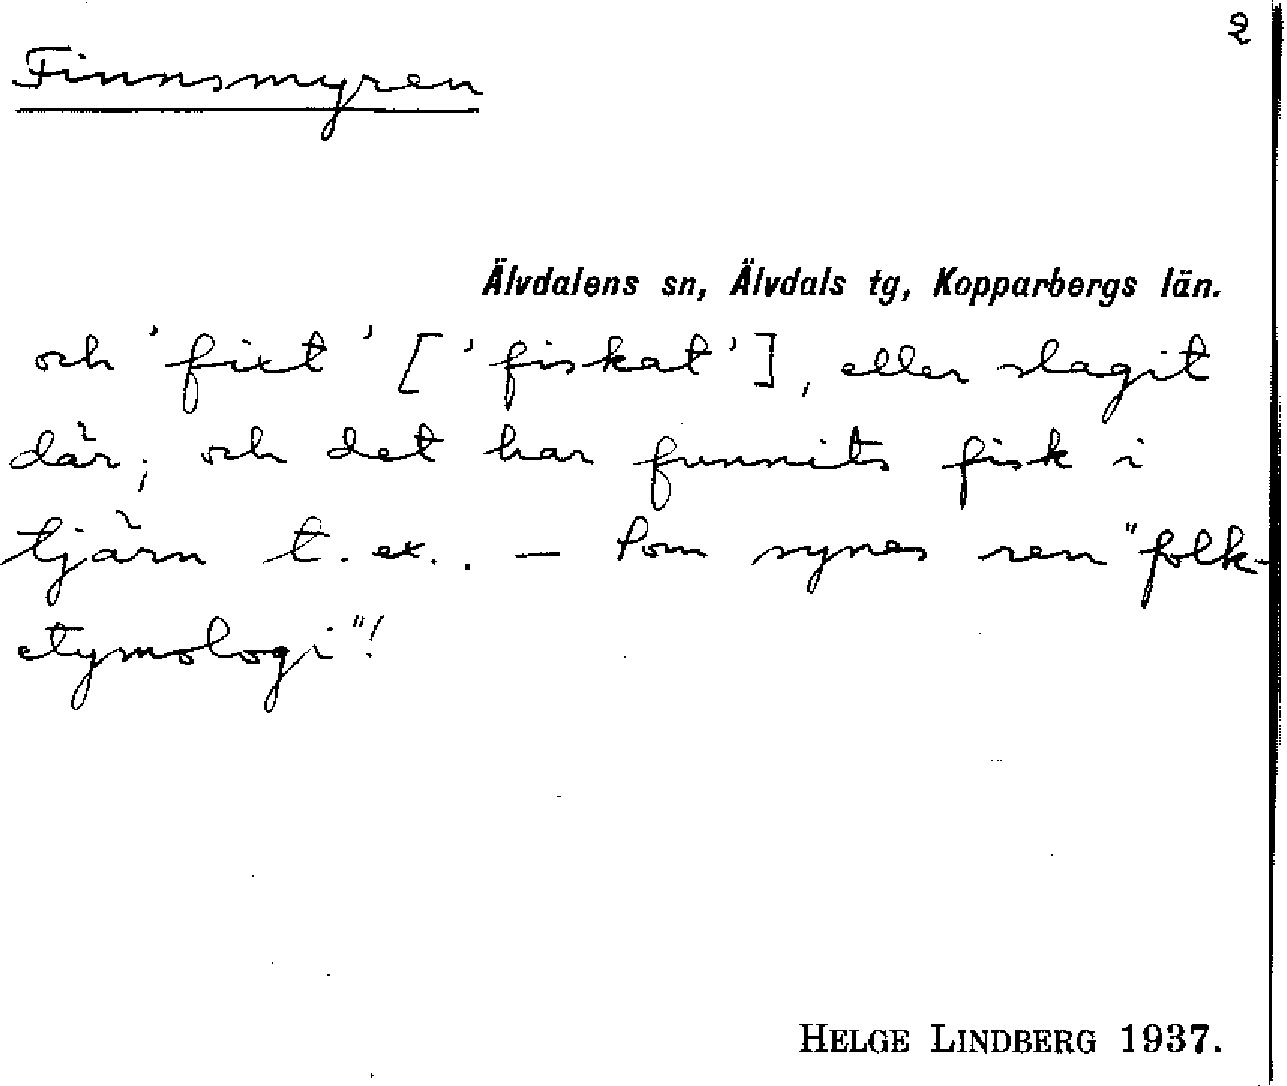 2
Finnsmyren
Älvdalens sn, Älvdals tg, Kopparbergs län.
och 'fixt' ['fiskat'], eller slagit
där; och det har funnits fisk i
tjärn t. ex.. — Som synes ren "folk-
etymologi"!
HELGE LINDBERG 1937.